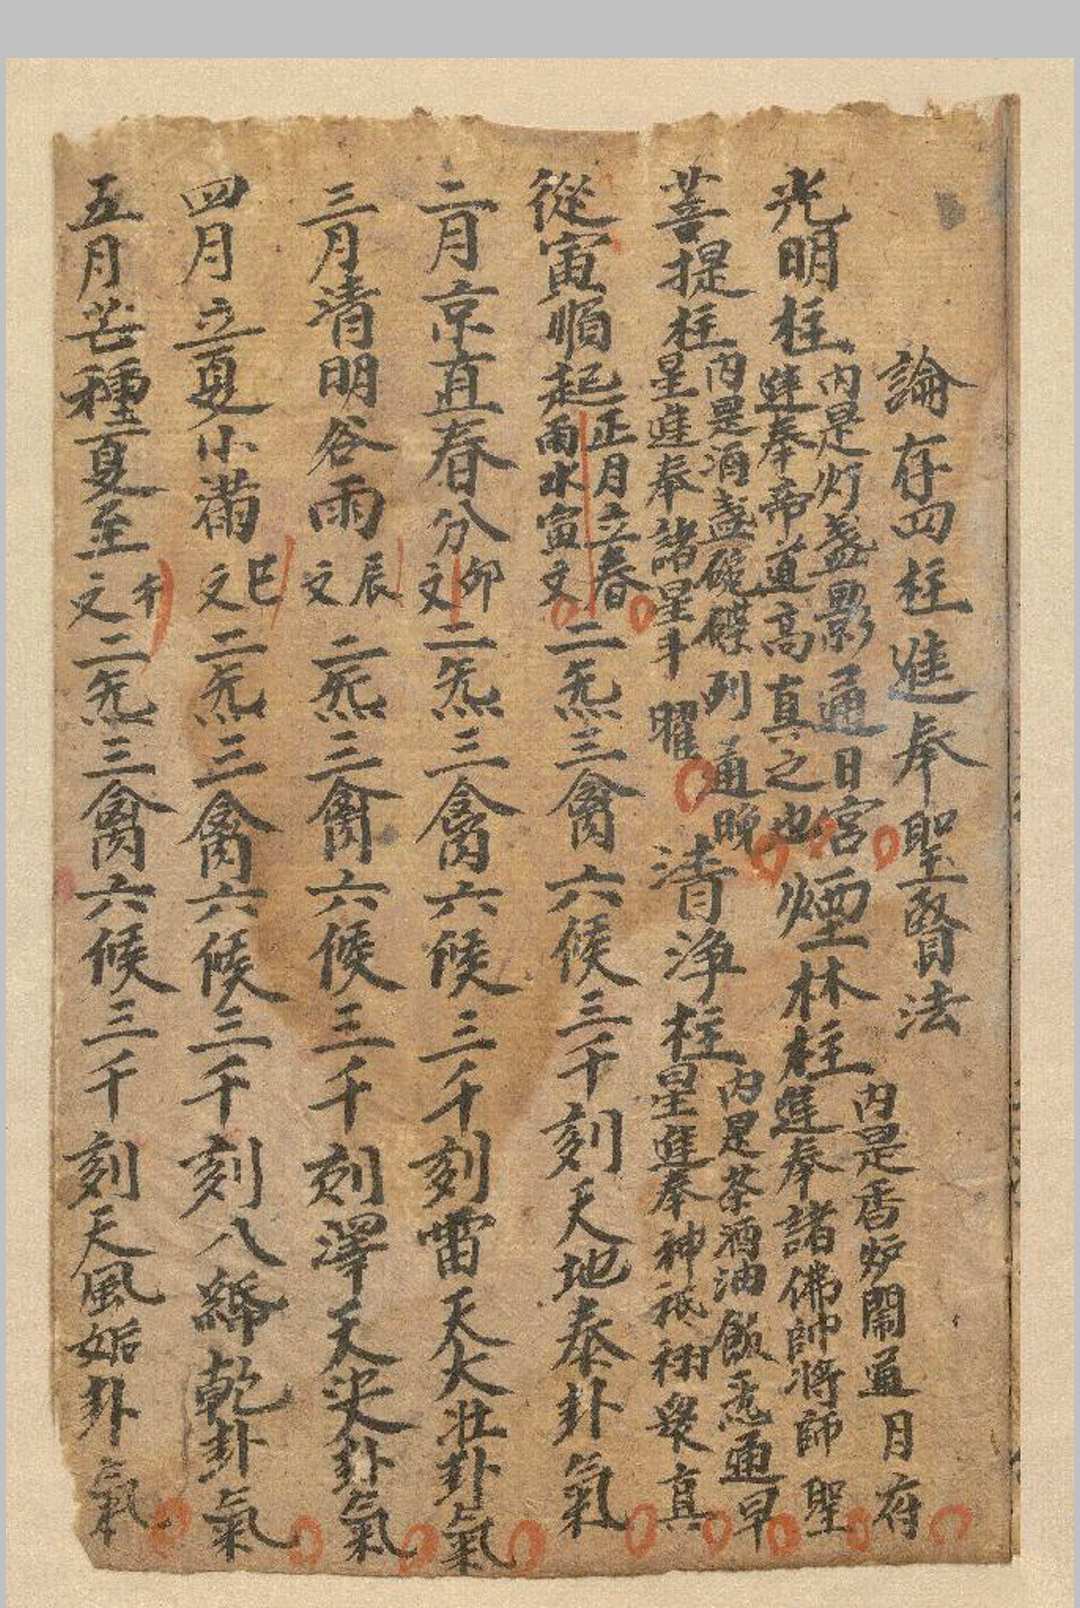 論存四柱進奉聖賢法
光明柱 內是灯盞影通日宮 進奉帝道高真之也 煙林柱 內是香炉閙通月府 進奉諸佛帥將師聖
菩提柱 內是酒盞碗碟列通晚 星進奉諸星斗曜 清淨柱 內是茶酒油飯悉通早 星進奉神祇栩衆真
從寅順起 正月立春 雨水寅文 二炁三禽六候三千刻天地泰卦氣
二月京直春分 卯文 二炁三禽六候三千刻雷天大壯卦氣
三月清明谷雨 辰文 二炁三禽六候三千刻澤天夬卦氣
四月立夏小滿 巳文 二炁三禽六候三千刻八純乾卦氣
五月芒種夏至 午文 二炁三禽六候三千刻天風姤卦氣